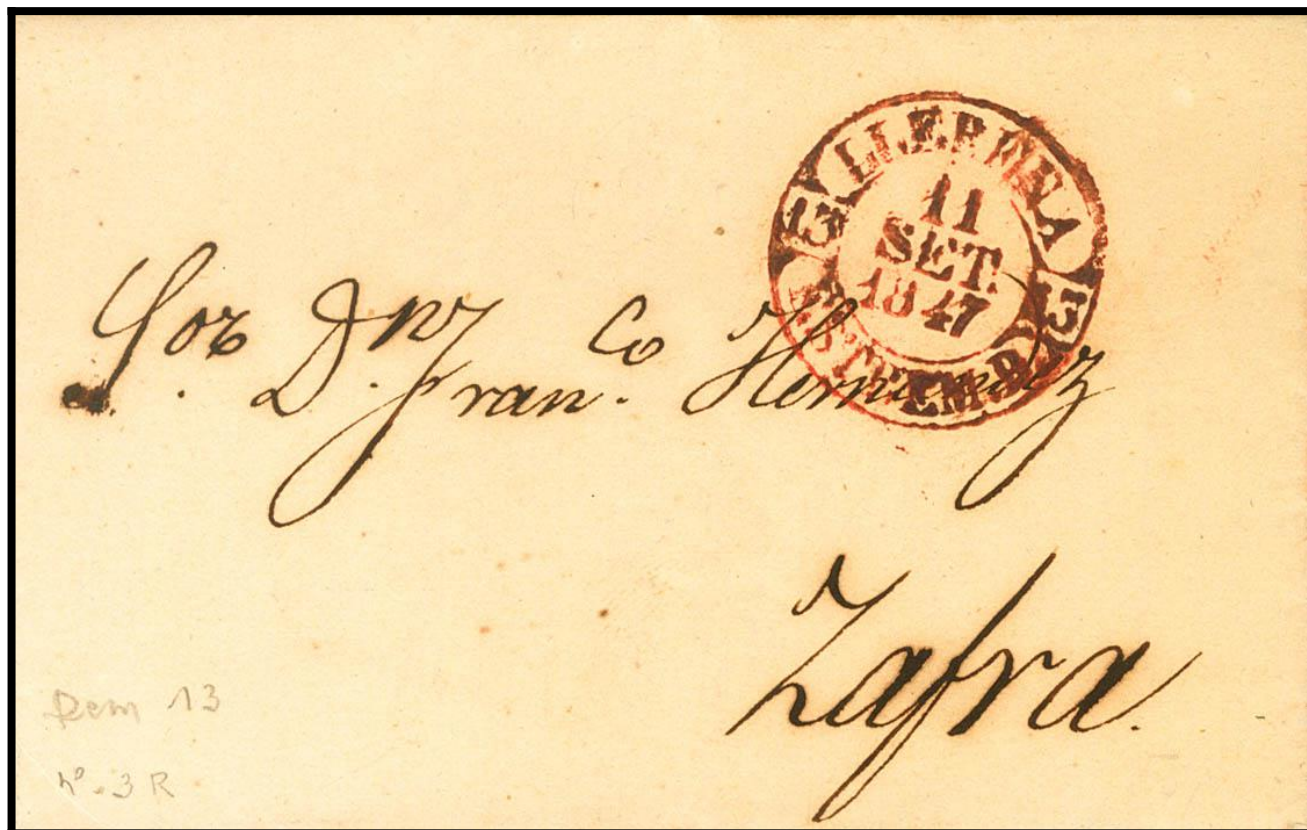 LLERENA
13
11
SET.
1847
13
S.or D.n Fran.co Hernandez
Zafra.
Dem 13
nº.3 R